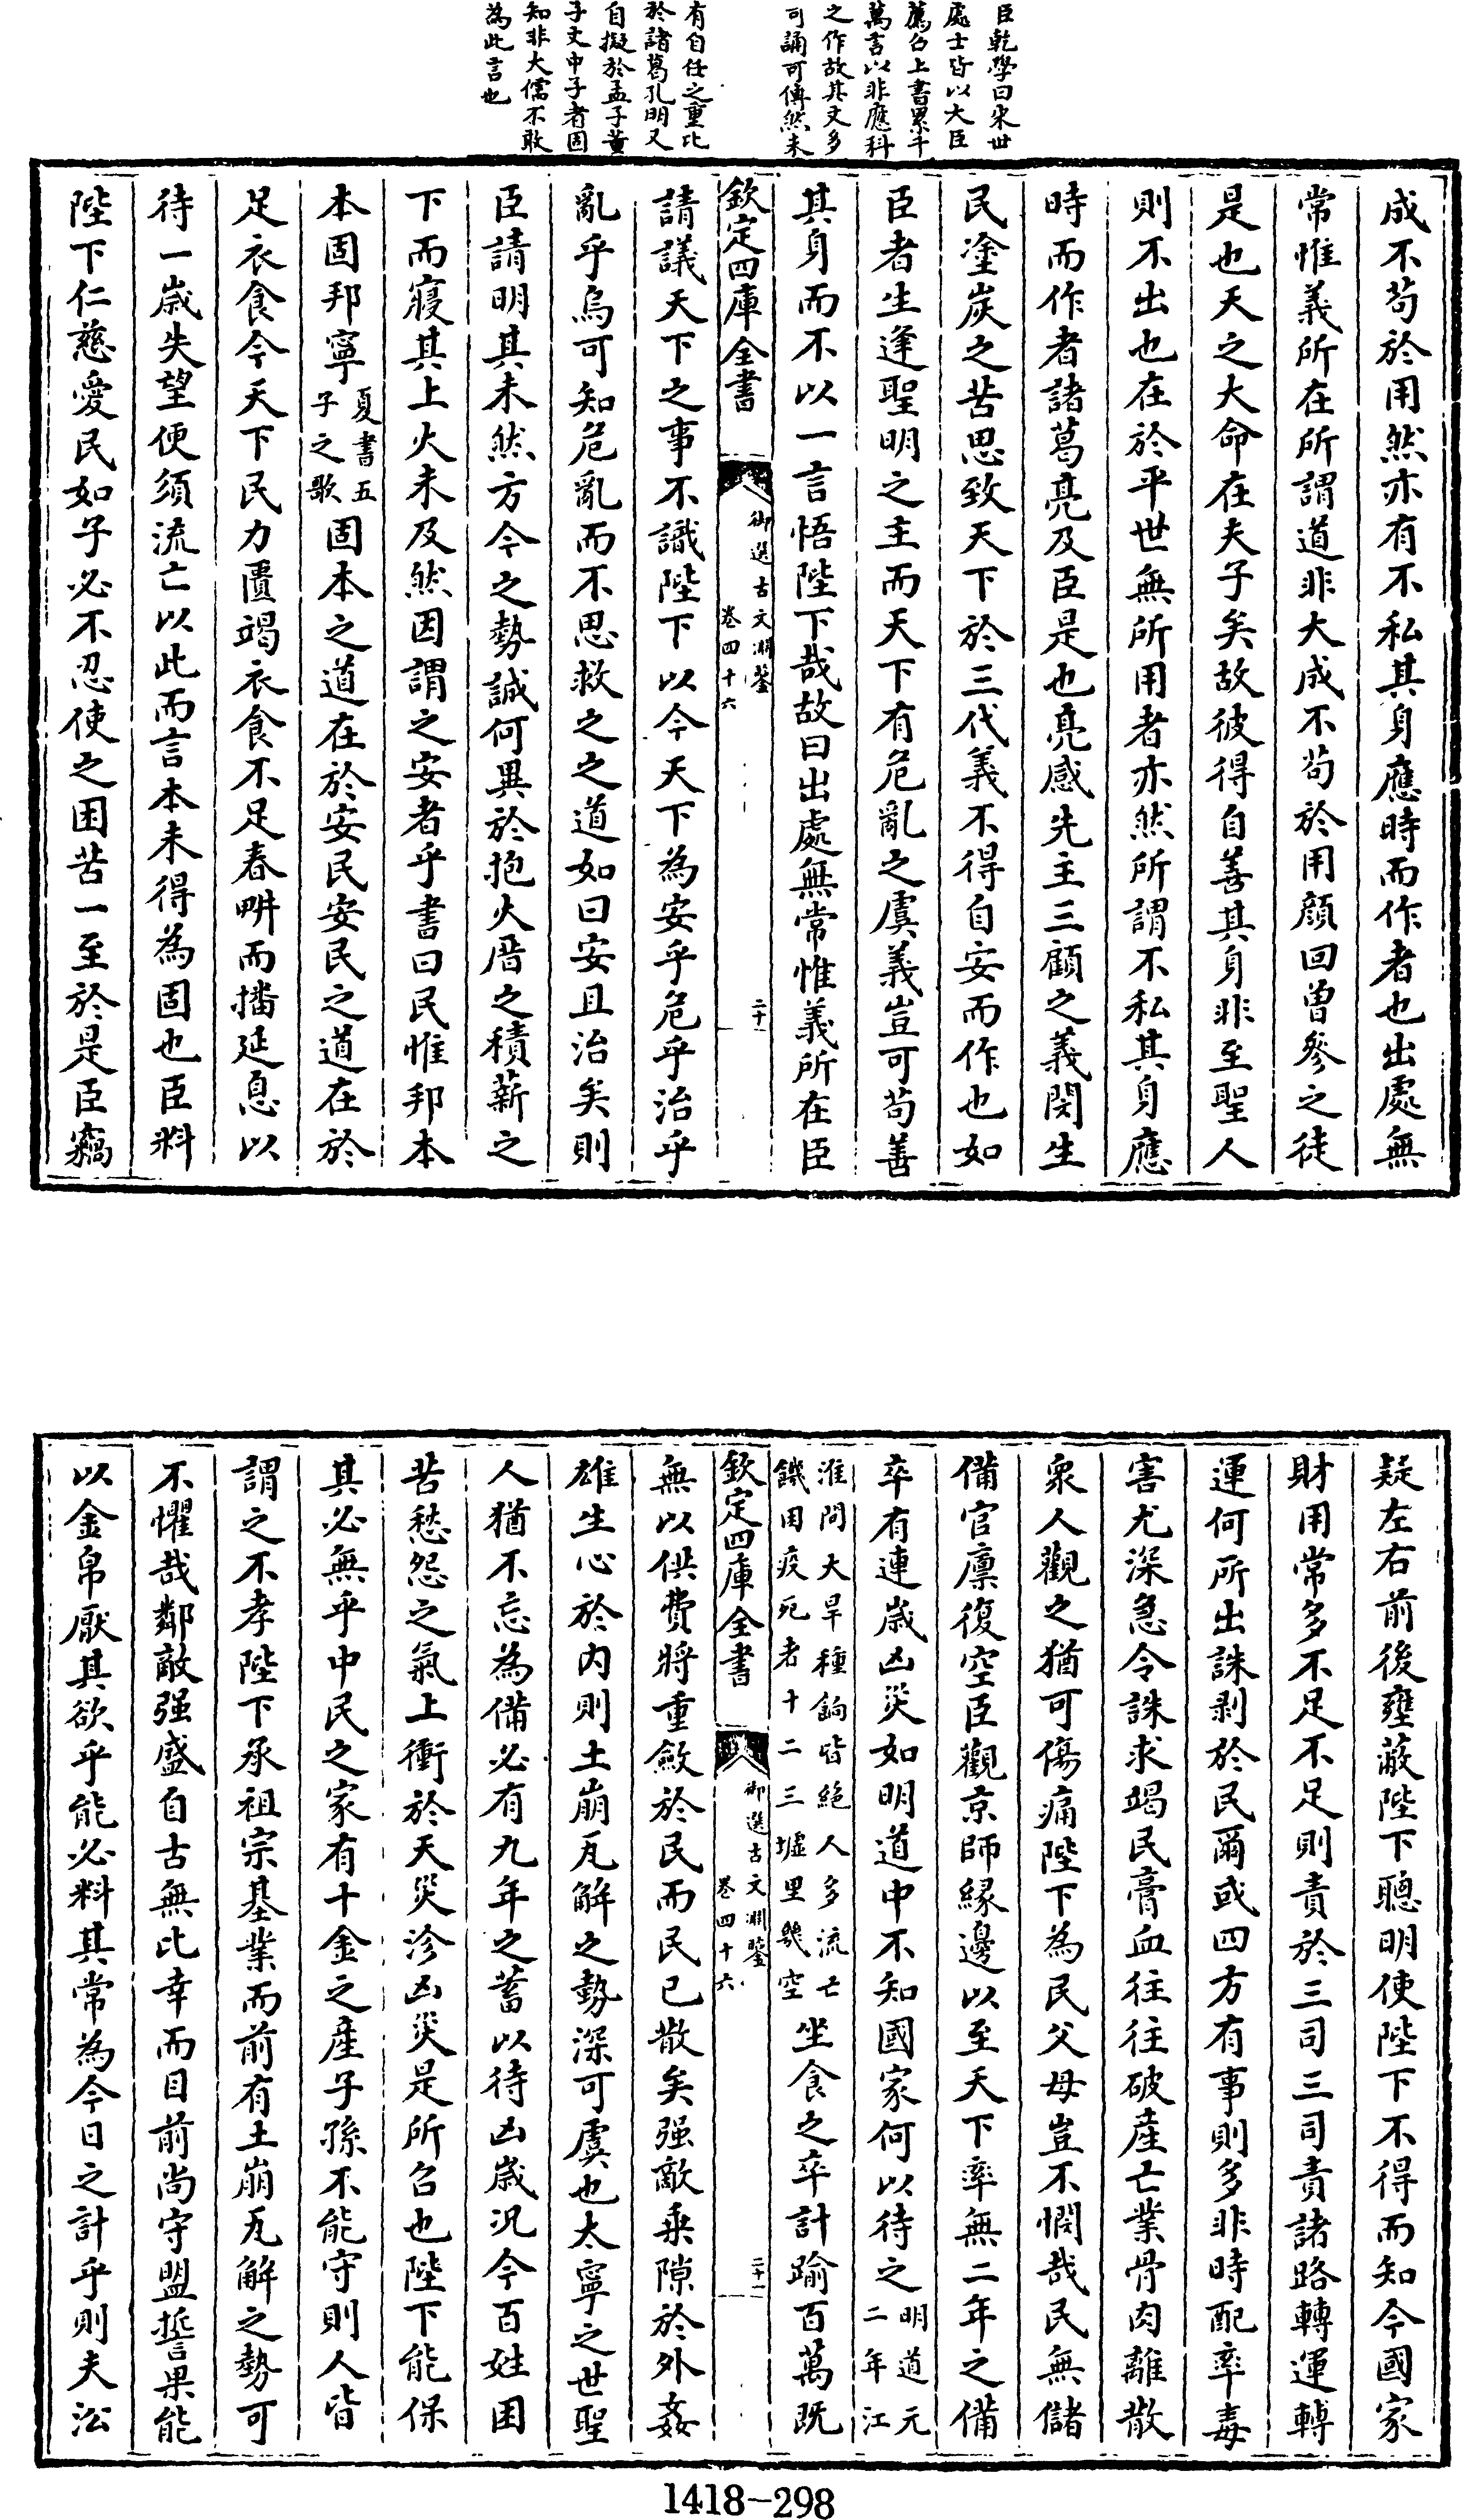 臣乾學曰宋世
處士皆以大臣
薦召上書累千
萬言以非應科
之作故其文多
可誦可傳然未
有自任之重比
於諸葛孔明又
自擬於孟子董
子文中子者固
知非大儒不敢
為此言也
成不苟於用然亦有不私其身應時而作者也出處無
常惟義所在所謂道非大成不苟於用顔回曽參之徒
是也天之大命在夫子矣故彼得自善其身非至聖人
則不出也在於平世無所用者亦然所謂不私其身應
時而作者諸葛亮及臣是也亮感先主三顧之義閔生
民塗炭之苦思致天下於三代義不得自安而作也如
臣者生逢聖明之主而天下有危亂之虞義豈可苟善
其身而不以一言悟陛下哉故曰出處無常惟義所在臣
欽定四庫全書
御選古文淵鑒
卷四十六
二十
請議天下之事不識陛下以今天下為安乎危乎治乎
亂乎烏可知危亂而不思救之之道如曰安且治矣則
臣請明其未然方今之勢誠何異於抱火厝之積薪之
下而寢其上火未及然因謂之安者乎書曰民惟邦本
本固邦寧夏書五子之歌固本之道在於安民安民之道在於
足衣食今天下民力匱竭衣食不足春畊而播延息以
待一嵗失望便須流亡以此而言本未得為固也臣料
陛下仁慈愛民如子必不忍使之困苦一至於是臣竊
疑左右前後壅蔽陛下聰明使陛下不得而知今國家
財用常多不足不足則責於三司三司責諸路轉運轉
運何所出誅剥於民爾或四方有事則多非時配率毒
害尤深急令誅求竭民膏血往往破産亡業骨肉離散
衆人觀之猶可傷痛陛下為民父母豈不憫哉民無儲
備官廪復空臣觀京師緣邊以至天下率無二年之備
卒有連嵗凶災如明道中不知國家何以待之明道元二年江
淮間大旱種餉皆絶人多流亡饑困疫死者十二三墟里幾空坐食之卒計踰百萬既
欽定四庫全書
御選古文淵鑒
卷四十六
二十一
無以供費將重斂於民而民已散矣强敵乗隙於外姦
雄生心於内則土崩瓦解之勢深可虞也太寧之世聖
人猶不忘為備必有九年之蓄以待凶嵗况今百姓困
苦愁怨之氣上衝於天災沴凶災是所召也陛下能保
其必無乎中民之家有十金之産子孫不能守則人皆
謂之不孝陛下承祖宗基業而前有土崩瓦解之勢可
不懼哉鄰敵强盛自古無比幸而目前尚守盟誓果能
以金帛厭其欲乎能必料其常為今日之計乎則夫㳂
1418-298